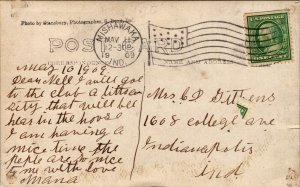 Photo by Stansbury, Photographer, S. Bend, Ind.
MISHAWAKA
MAY 11
12-30 PM
1909
IND
POST CARD
CORRESPONDENCE
NAME AND ADDRESS
May 10 1909
Dear Nell I will goe
to the club a little in
city that will be
hear in the house
I am having a
nice time the
people are so nice
to me with love
Mama
Mrs. C D Dithens
1608 college ave
Indianapolis
Ind